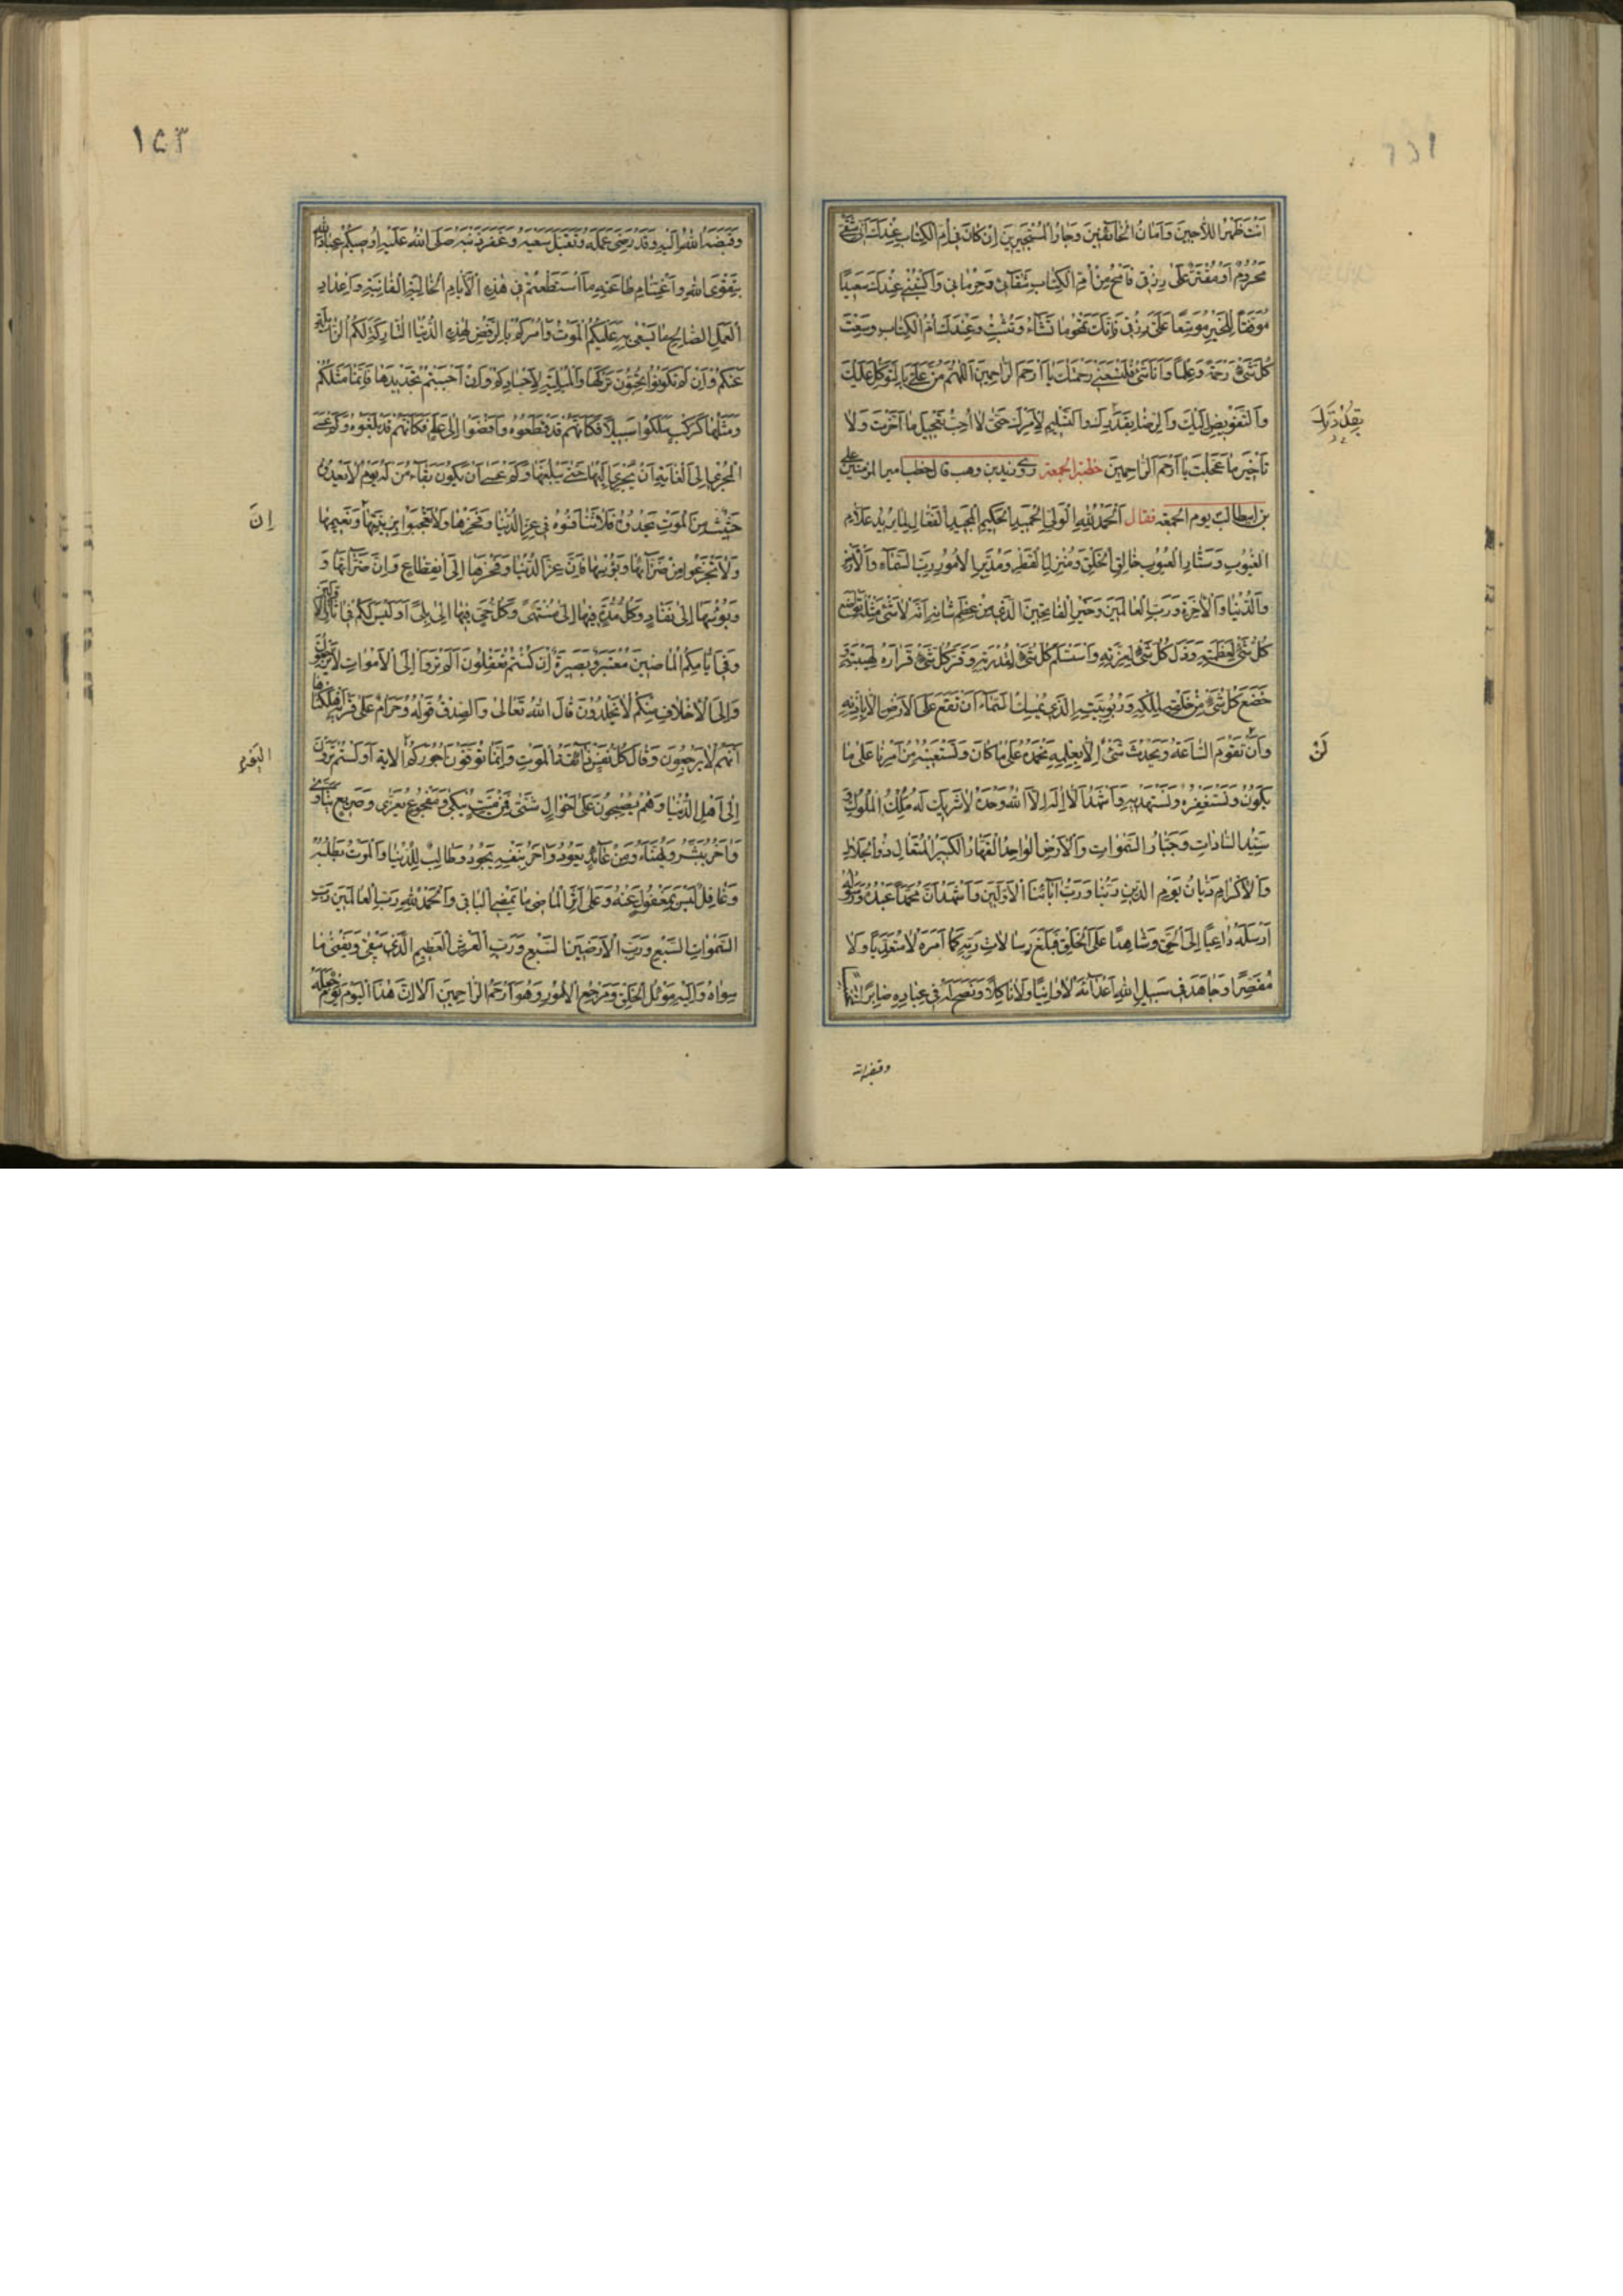 اَنْتَ ظَهْرُ اللّاجِينَ وَاَمَانُ الْخَائِفِينَ وَجَارُ الْمُسْتَجِيرِينَ اِنْ كَانَ فِى اُمِّ الْكِتَابِ عِنْدَكَ اَنّى شَقِىٌّ
مَحْرُومٌ اَوْ مُقْتَرٌ عَلَىَّ رِزْقِى فَامْحُ مِنْ اُمِّ الْكِتَابِ شَقَائِى وَحِرْمَانِى وَاكْتُبْنِى عِنْدَكَ سَعِيدًا
مُوَفَّقًا لِلْخَيْرِ مُوَسَّعًا عَلَىَّ رِزْقِى فَاِنَّكَ تَمْحُو مَا تَشَاءُ وَتُثْبِتُ وَعِنْدَكَ اُمُّ الْكِتَابِ وَسِعْتَ
كُلَّ شَىْءٍ رَحْمَةً وَعِلْمًا وَاَنَا شَىْءٌ فَلْتَسَعْنِى رَحْمَتُكَ يَا اَرْحَمَ الرَّاحِمِينَ اَللّهُمَّ مُنَّ عَلَىَّ بِالتَّوَكُّلِ عَلَيْكَ
وَالتَّفْوِيضِ اِلَيْكَ وَالرِّضَا بِقَدَرِكَ وَالتَّسْلِيمِ لِاَمْرِكَ حَتَّى لَا اُحِبَّ تَعْجِيلَ مَا اَخَّرْتَ وَلَا
تَأْخِيرَ مَا عَجَّلْتَ يَا اَرْحَمَ الرَّاحِمِينَ خطبة الجمعة روى زيد بن وهب قال خطب امير المؤمنين على
بن ابيطالب يوم الجمعة فقال اَلْحَمْدُ لِلّهِ الْوَلِىِّ الْحَمِيدِ الْحَكِيمِ الْمَجِيدِ الْفَعَّالِ لِمَا يُرِيدُ عَلّامِ
الْغُيُوبِ وَسَتَّارِ الْعُيُوبِ خَالِقِ الْخَلْقِ وَمُنْزِلِ الْقَطْرِ وَمُدَبِّرِ الْاُمُورِ رَبِّ السَّمَاءِ وَالْاَرْضِ
وَالدُّنْيَا وَالْآخِرَةِ وَرَبِّ الْعَالَمِينَ وَخَيْرِ الْفَاتِحِينَ الَّذِى مِنْ عِظَمِ شَانِهِ اَنَّهُ لَا شَىْءَ مِثْلُهُ تَوَاضَعَ
كُلُّ شَىْءٍ لِعَظَمَتِهِ وَذَلَّ كُلُّ شَىْءٍ لِعِزَّتِهِ وَاسْتَسْلَمَ كُلُّ شَىْءٍ لِقُدْرَتِهِ وَقَرَّ كُلُّ شَىْءٍ قَرَارَهُ لِهَيْبَتِهِ
خَضَعَ كُلُّ شَىْءٍ مِنْ خَلْقِهِ لِمُلْكِهِ وَرُبُوبِيَّتِهِ الَّذِى يُمْسِكُ السَّمَاءَ اَنْ تَقَعَ عَلَى الْاَرْضِ اِلَّا بِاِذْنِهِ
وَاَنْ تَقُومَ السَّاعَةُ وَيَحْدُثَ شَىْءٌ اِلَّا بِعِلْمِهِ نَحْمَدُهُ عَلَى مَا كَانَ وَنَسْتَعِينُهُ مِنْ اَمْرِنَا عَلَى مَا
يَكُونُ وَنَسْتَغْفِرُهُ وَنَسْتَهْدِيهِ وَاَشْهَدُ اَنْ لَا اِلَهَ اِلَّا اللهُ وَحْدَهُ لَا شَرِيكَ لَهُ مَلِكُ الْمُلُوكِ وَ
سَيِّدُ السَّادَاتِ وَجَبَّارُ السَّمَوَاتِ وَالْاَرْضِ الْوَاحِدُ الْقَهَّارُ الْكَبِيرُ الْمُتَعَالِ ذُو الْجَلَالِ
وَالْاِكْرَامِ دَيَّانُ يَوْمِ الدِّينِ رَبُّنَا وَرَبُّ آبَائِنَا الْاَوَّلِينَ وَاَشْهَدُ اَنَّ مُحَمَّدًا عَبْدُهُ وَرَسُولُهُ
اَرْسَلَهُ دَاعِيًا اِلَى الْحَقِّ وَشَاهِدًا عَلَى الْخَلْقِ فَبَلَّغَ رِسَالَاتِ رَبِّهِ كَمَا اَمَرَهُ لَا مُتَعَدِّيًا وَلَا
مُقَصِّرًا وَجَاهَدَ فِى سَبِيلِ اللهِ اَعْدَائَهُ لَا وَانِيًا وَلَا نَاكِلًا وَنَصَحَ لَهُ فِى عِبَادِهِ صَابِرًا
لَنْ
١٥٣
وَقَبَضَهُ اللهُ اِلَيْهِ وَقَدْ رَضِىَ عَمَلَهُ وَتَقَبَّلَ سَعْيَهُ وَغَفَرَ ذَنْبَهُ صَلَّى اللهُ عَلَيْهِ اُوصِيكُمْ عِبَادَ اللهِ
بِتَقْوَى اللهِ وَاغْتِنَامِ طَاعَتِهِ مَا اسْتَطَعْتُمْ فِى هَذِهِ الْاَيَّامِ الْخَالِيَةِ الْفَانِيَةِ وَاِعْدَادِ
الْعَمَلِ الصَّالِحِ عَلَيْكُمُ الْمَوْتُ وَآمُرُكُمْ بِالرَّفْضِ لِهَذِهِ الدُّنْيَا التَّارِكَةِ لَكُمُ الزَّائِلَةِ
عَنْكُمْ وَاِنْ لَمْ تَكُونُوا تُحِبُّونَ تَرْكَهَا وَالْمُبْلِيَةِ لِاَجْسَادِكُمْ وَاِنْ اَحْبَبْتُمْ تَجْدِيدَهَا فَاِنَّمَا مَثَلُكُمْ
وَمَثَلُهَا كَرَكْبٍ سَلَكُوا سَبِيلًا فَكَاَنَّهُمْ قَدْ قَطَعُوهُ وَاَفْضَوْا اِلَى عَلَمٍ فَكَاَنَّهُمْ قَدْ بَلَغُوهُ وَكَمْ عَسَى
الْمُجْرِى اِلَى الْغَايَةِ اَنْ يُجْرِىَ اِلَيْهَا حَتَّى يَبْلُغَهَا وَكَمْ عَسَى اَنْ يَكُونَ بَقَاءُ مَنْ لَهُ يَوْمٌ لَا يَعْدُوهُ
حَثِيثٌ مِنَ الْمَوْتِ يَحْدُوهُ فَلَا تَنَافَسُوا فِى عِزِّ الدُّنْيَا وَفَخْرِهَا وَلَا تَعْجَبُوا بِزِينَتِهَا وَنَعِيمِهَا
اِنَّ
وَلَا تَجْزَعُوا مِنْ ضَرَّائِهَا وَبُؤْسِهَا فَاِنَّ عِزَّ الدُّنْيَا وَفَخْرَهَا اِلَى انْقِطَاعٍ وَاِنَّ ضَرَّائَهَا وَ
وَبُؤْسَهَا اِلَى نَفَادٍ وَكُلُّ مُدَّةٍ فِيهَا اِلَى مُنْتَهًى وَكُلُّ حَىٍّ فِيهَا اِلَى بِلًى اَوَلَيْسَ لَكُمْ فِى آثَارِ الْاَوَّلِينَ
وَفِى آبَائِكُمُ الْمَاضِينَ مُعْتَبَرٌ وَبَصِيرَةٌ اِنْ كُنْتُمْ تَعْقِلُونَ اَلَمْ تَرَوْا اِلَى الْاَمْوَاتِ لَا يَرْجِعُونَ
وَاِلَى الْاَخْلَافِ مِنْكُمْ لَا يَخْلُدُونَ قَالَ اللهُ تَعَالَى وَالصِّدْقُ قَوْلُهُ وَحَرَامٌ عَلَى قَرْيَةٍ اَهْلَكْنَاهَا
اَنَّهُمْ لَا يَرْجِعُونَ وَقَالَ كُلُّ نَفْسٍ ذَائِقَةُ الْمَوْتِ وَاِنَّمَا تُوَفَّوْنَ اُجُورَكُمْ الآية اَوَلَسْتُمْ تَرَوْنَ
اِلَى اَهْلِ الدُّنْيَا وَهُمْ يُصْبِحُونَ عَلَى اَحْوَالٍ شَتَّى فَمِنْ مَيِّتٍ يُبْكَى وَمَفْجُوعٍ يُعَزَّى وَصَرِيعٍ يَتَلَوَّى
وَآخَرُ يُبَشَّرُ وَيُهَنَّأُ وَمِنْ عَائِدٍ يَعُودُ وَآخَرُ بِنَفْسِهِ يَجُودُ وَطَالِبٌ لِلدُّنْيَا وَالْمَوْتُ يَطْلُبُهُ
وَغَافِلٌ لَيْسَ بِمَغْفُولٍ عَنْهُ وَعَلَى اَثَرِ الْمَاضِى مَا يَمْضِى الْبَاقِى وَالْحَمْدُ لِلّهِ رَبِّ الْعَالَمِينَ رَبِّ
السَّمَوَاتِ السَّبْعِ وَرَبِّ الْاَرَضِينَ السَّبْعِ وَرَبِّ الْعَرْشِ الْعَظِيمِ الَّذِى يَبْقَى وَيَفْنَى مَا
سِوَاهُ وَاِلَيْهِ مَوْئِلُ الْخَلْقِ وَمَرْجِعُ الْاُمُورِ وَهُوَ اَرْحَمُ الرَّاحِمِينَ اَلَا اِنَّ هَذَا الْيَوْمَ يَوْمٌ جَعَلَهُ